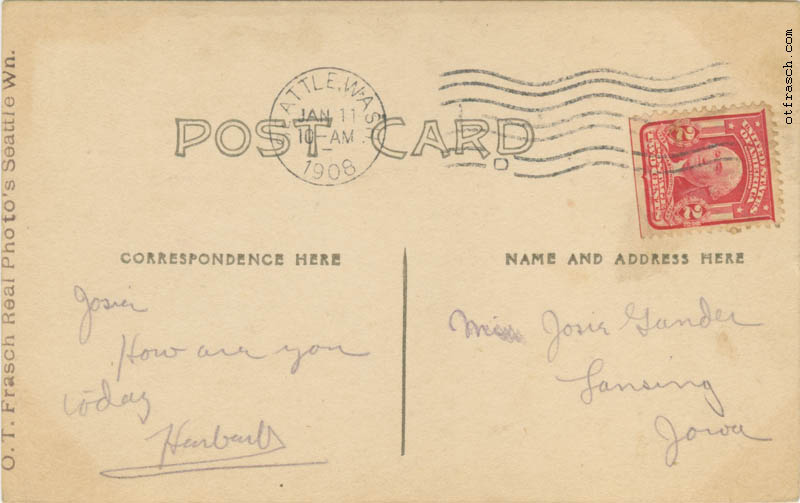 SEATTLE, WASH.
JAN 11
10-AM
1908
POST CARD
UNITED STATES OF AMERICA
2 2
CORRESPONDENCE HERE
NAME AND ADDRESS HERE
Josie
How are you
today
Miss Josie Gander
Lansing
Iowa
O. T. Frasch Real Photo's Seattle Wn.
otfrasch.com